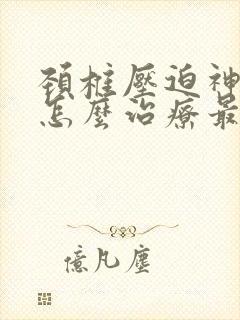 頸椎壓迫神
怎麼治療最
億凡塵